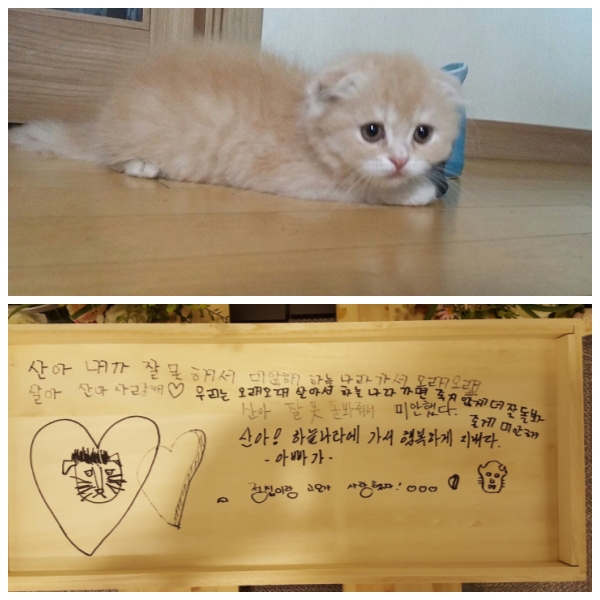 산아 내가 잘못 해서 미안해 하늘 나라 가서 오래오래
살아 산아 사랑해♡ 우리는 오래오래 살아서 하늘 나라 가면 죽지 않게 더 잘 돌봐
줄게 미안해
산아 잘 못 돌봐줘 미안했다.
산아! 하늘나라에 가서 행복하게 지내라.
-아빠가-
고모가 사랑했다!